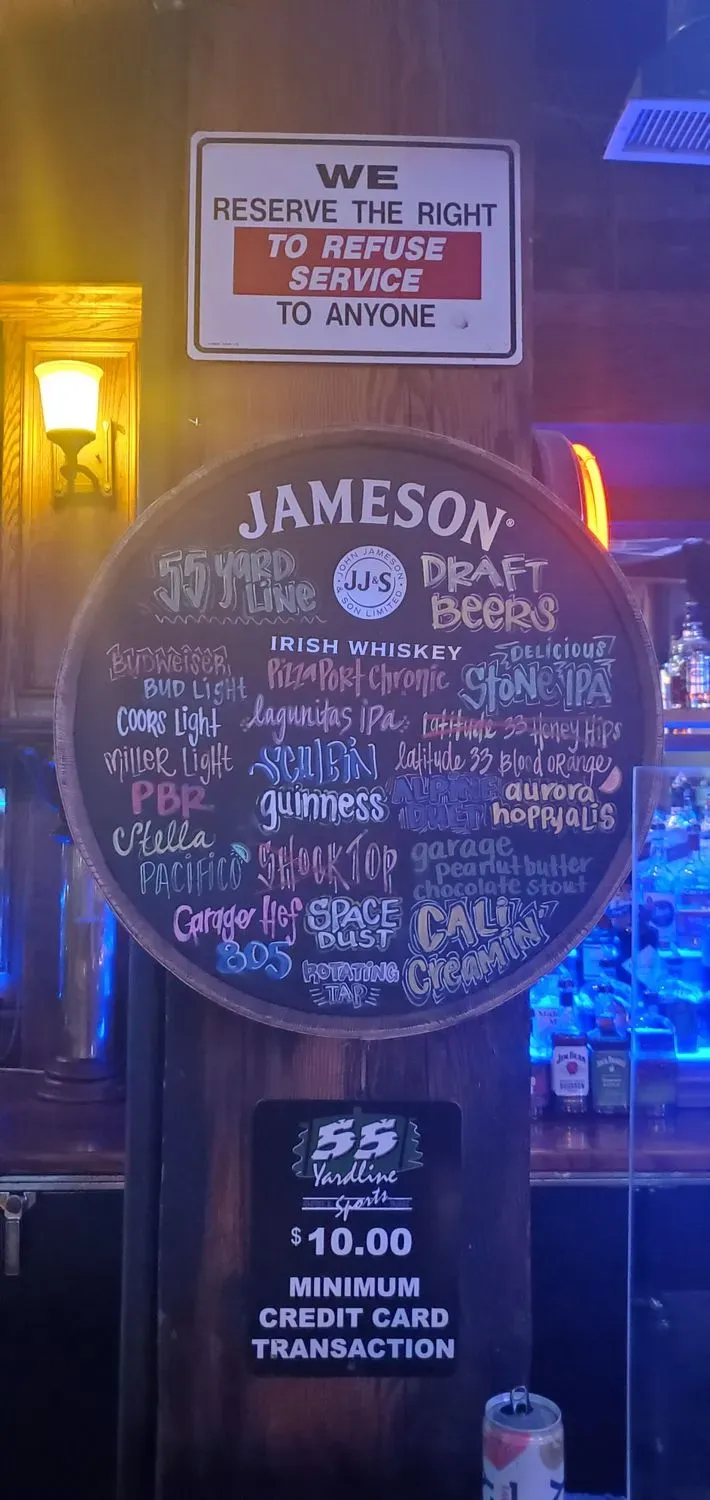 WE
RESERVE THE RIGHT
TO REFUSE
SERVICE
TO ANYONE
JAMESON®
55 YARD
LINE
JOHN JAMESON
JJ&S
& SON LIMITED
DRAFT
BEERS
IRISH WHISKEY
BUDWEISER
BUD Light
COORS Light
MILLER Light
PBR
Stella
PACIFICO
Garage Hef
805
Pizza Port Chronic
lagunitas iPa
SCULPIN
guinness
SHOCK TOP
SPACE
DUST
ROTATING
TAP
DELICIOUS
StONE IPA
latitude 33 Honey Hips
latitude 33 Blood orange
ALPINE
DUET
aurora
hoppyalis
garage
peanut butter
chocolate stout
CALi
CreamiN'
55
Yardline
Sports
$10.00
MINIMUM
CREDIT CARD
TRANSACTION
JIM BEAM